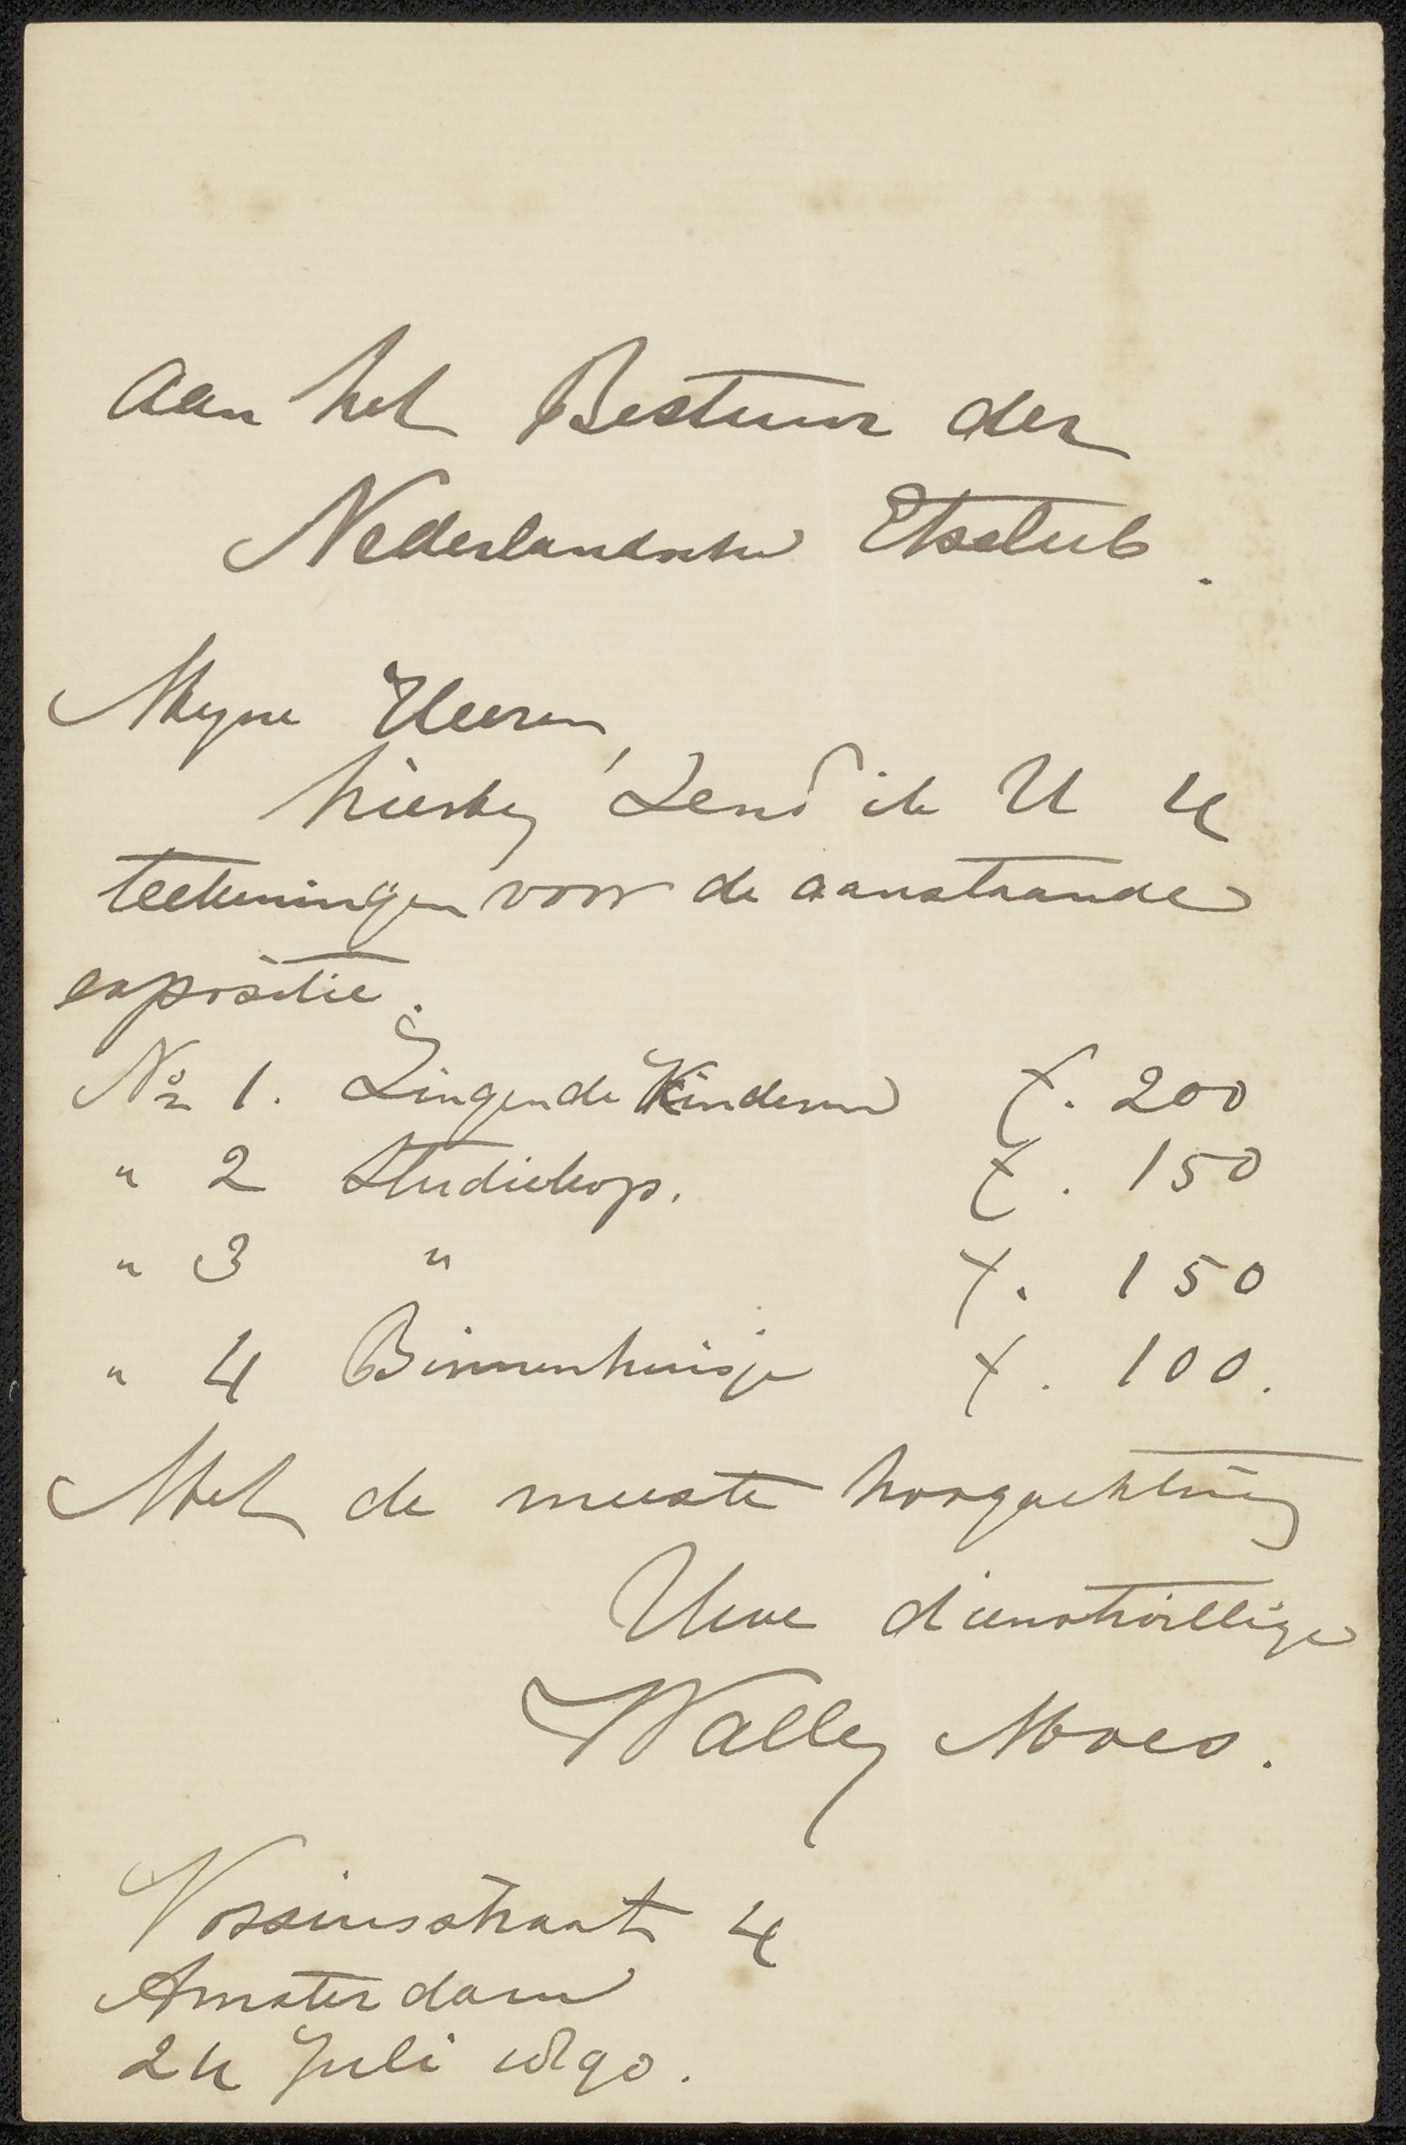 Aan het Bestuur der
Nederlandsche Etsclub.
Mijne Heeren,
hierbij zend ik U 4
teekeningen voor de aanstaande
expositie.
No 1. Zingende Kinderen f. 200
" 2 Studiekop. f. 150
" 3 " f. 150
" 4 Binnenhuisje f. 100.
Met de meeste hoogachting
Uwe dienstwillige
Wally Moes.
Vossiusstraat 4
Amsterdam
24 Juli 1890.